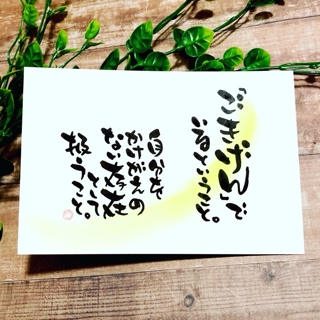 「ごきげん」で
いるということ。
自分を
かけがえの
ない存在
として
扱うこと。